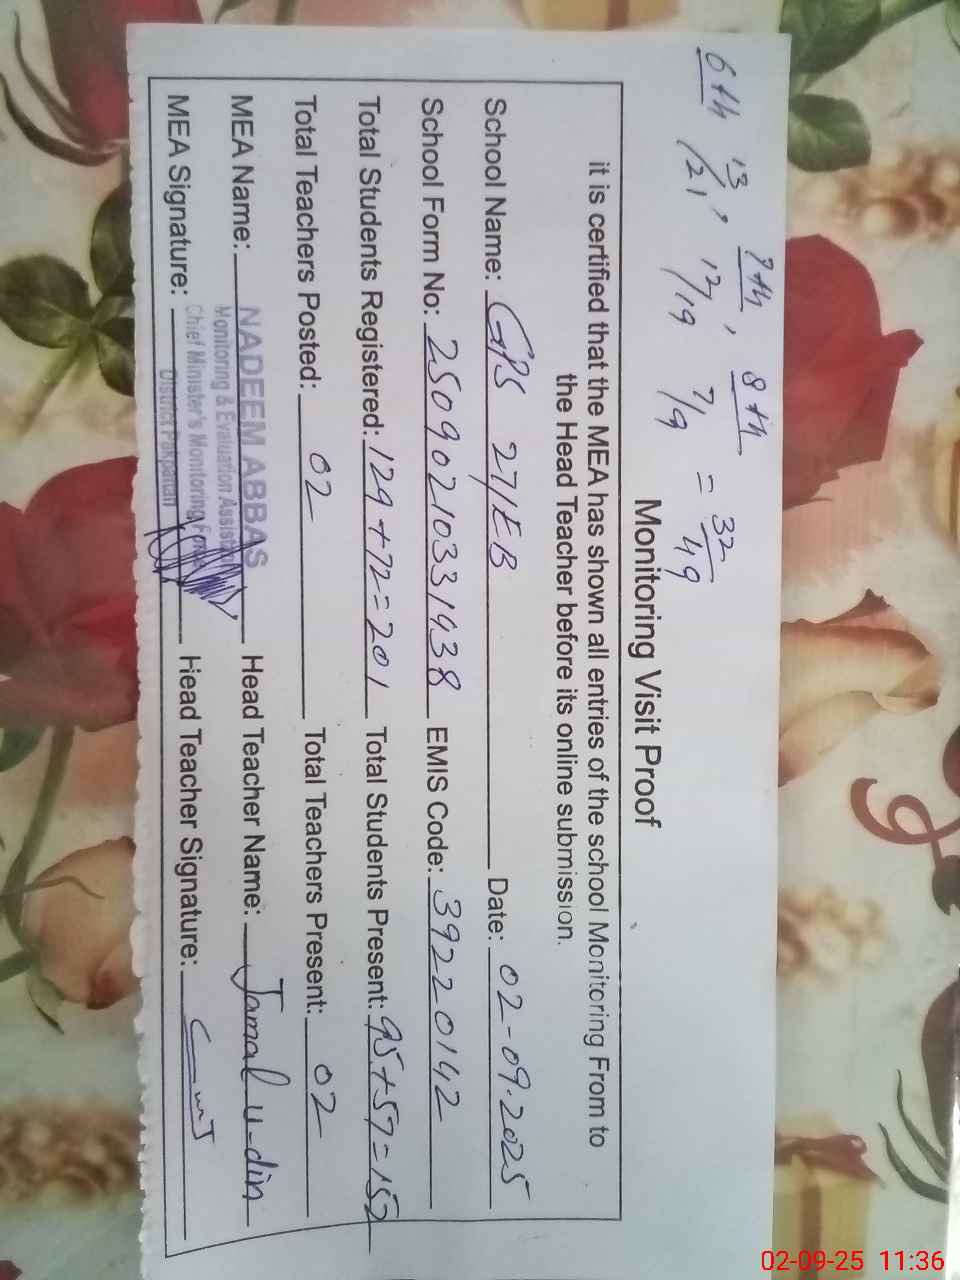 6th, 7th, 8th
13/21, 12/19 7/9 = 32/49
Monitoring Visit Proof
it is certified that the MEA has shown all entries of the school Monitoring From to
the Head Teacher before its online submission.
School Name: GPS 27/EB Date: 02-09-2025
School Form No: 25090210331438 EMIS Code: 39220142
Total Students Registered: 129+72=201 Total Students Present: 95+57=152
Total Teachers Posted: 02 Total Teachers Present: 02
MEA Name: NADEEM ABBAS Head Teacher Name: Jamal u-din
Monitoring & Evaluation Assistant
Chief Minister's Monitoring Force
District Pakpattan
MEA Signature: Head Teacher Signature:
02-09-25 11:36